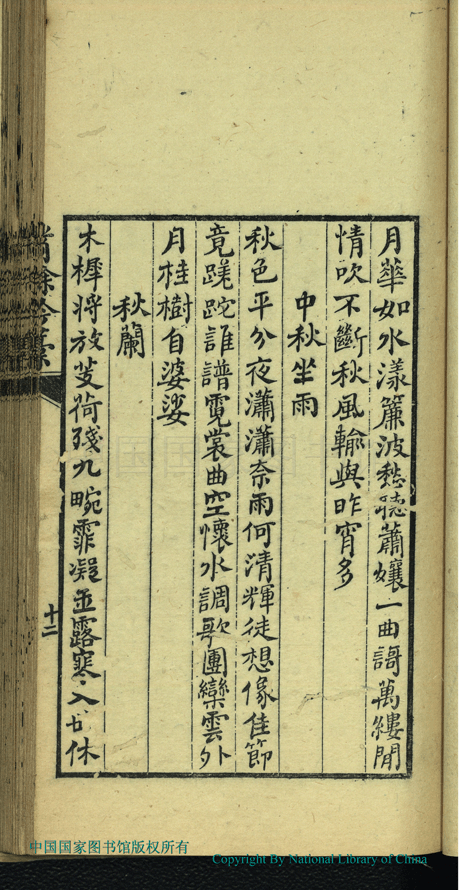 月華如水漾簾波愁聽蕭孃一曲謌萬縷閒
情吹不斷秋風輸與昨宵多
中秋坐雨
秋色平分夜瀟瀟奈雨何清輝徒想像佳節
竟蹉跎誰譜霓裳曲空懷水調歌團欒雲外
月桂樹自婆娑
秋蘭
木樨將放芰荷殘九畹霏凝玉露寒入廿休
十二
中国国家图书馆版权所有
Copyright By National Library of China